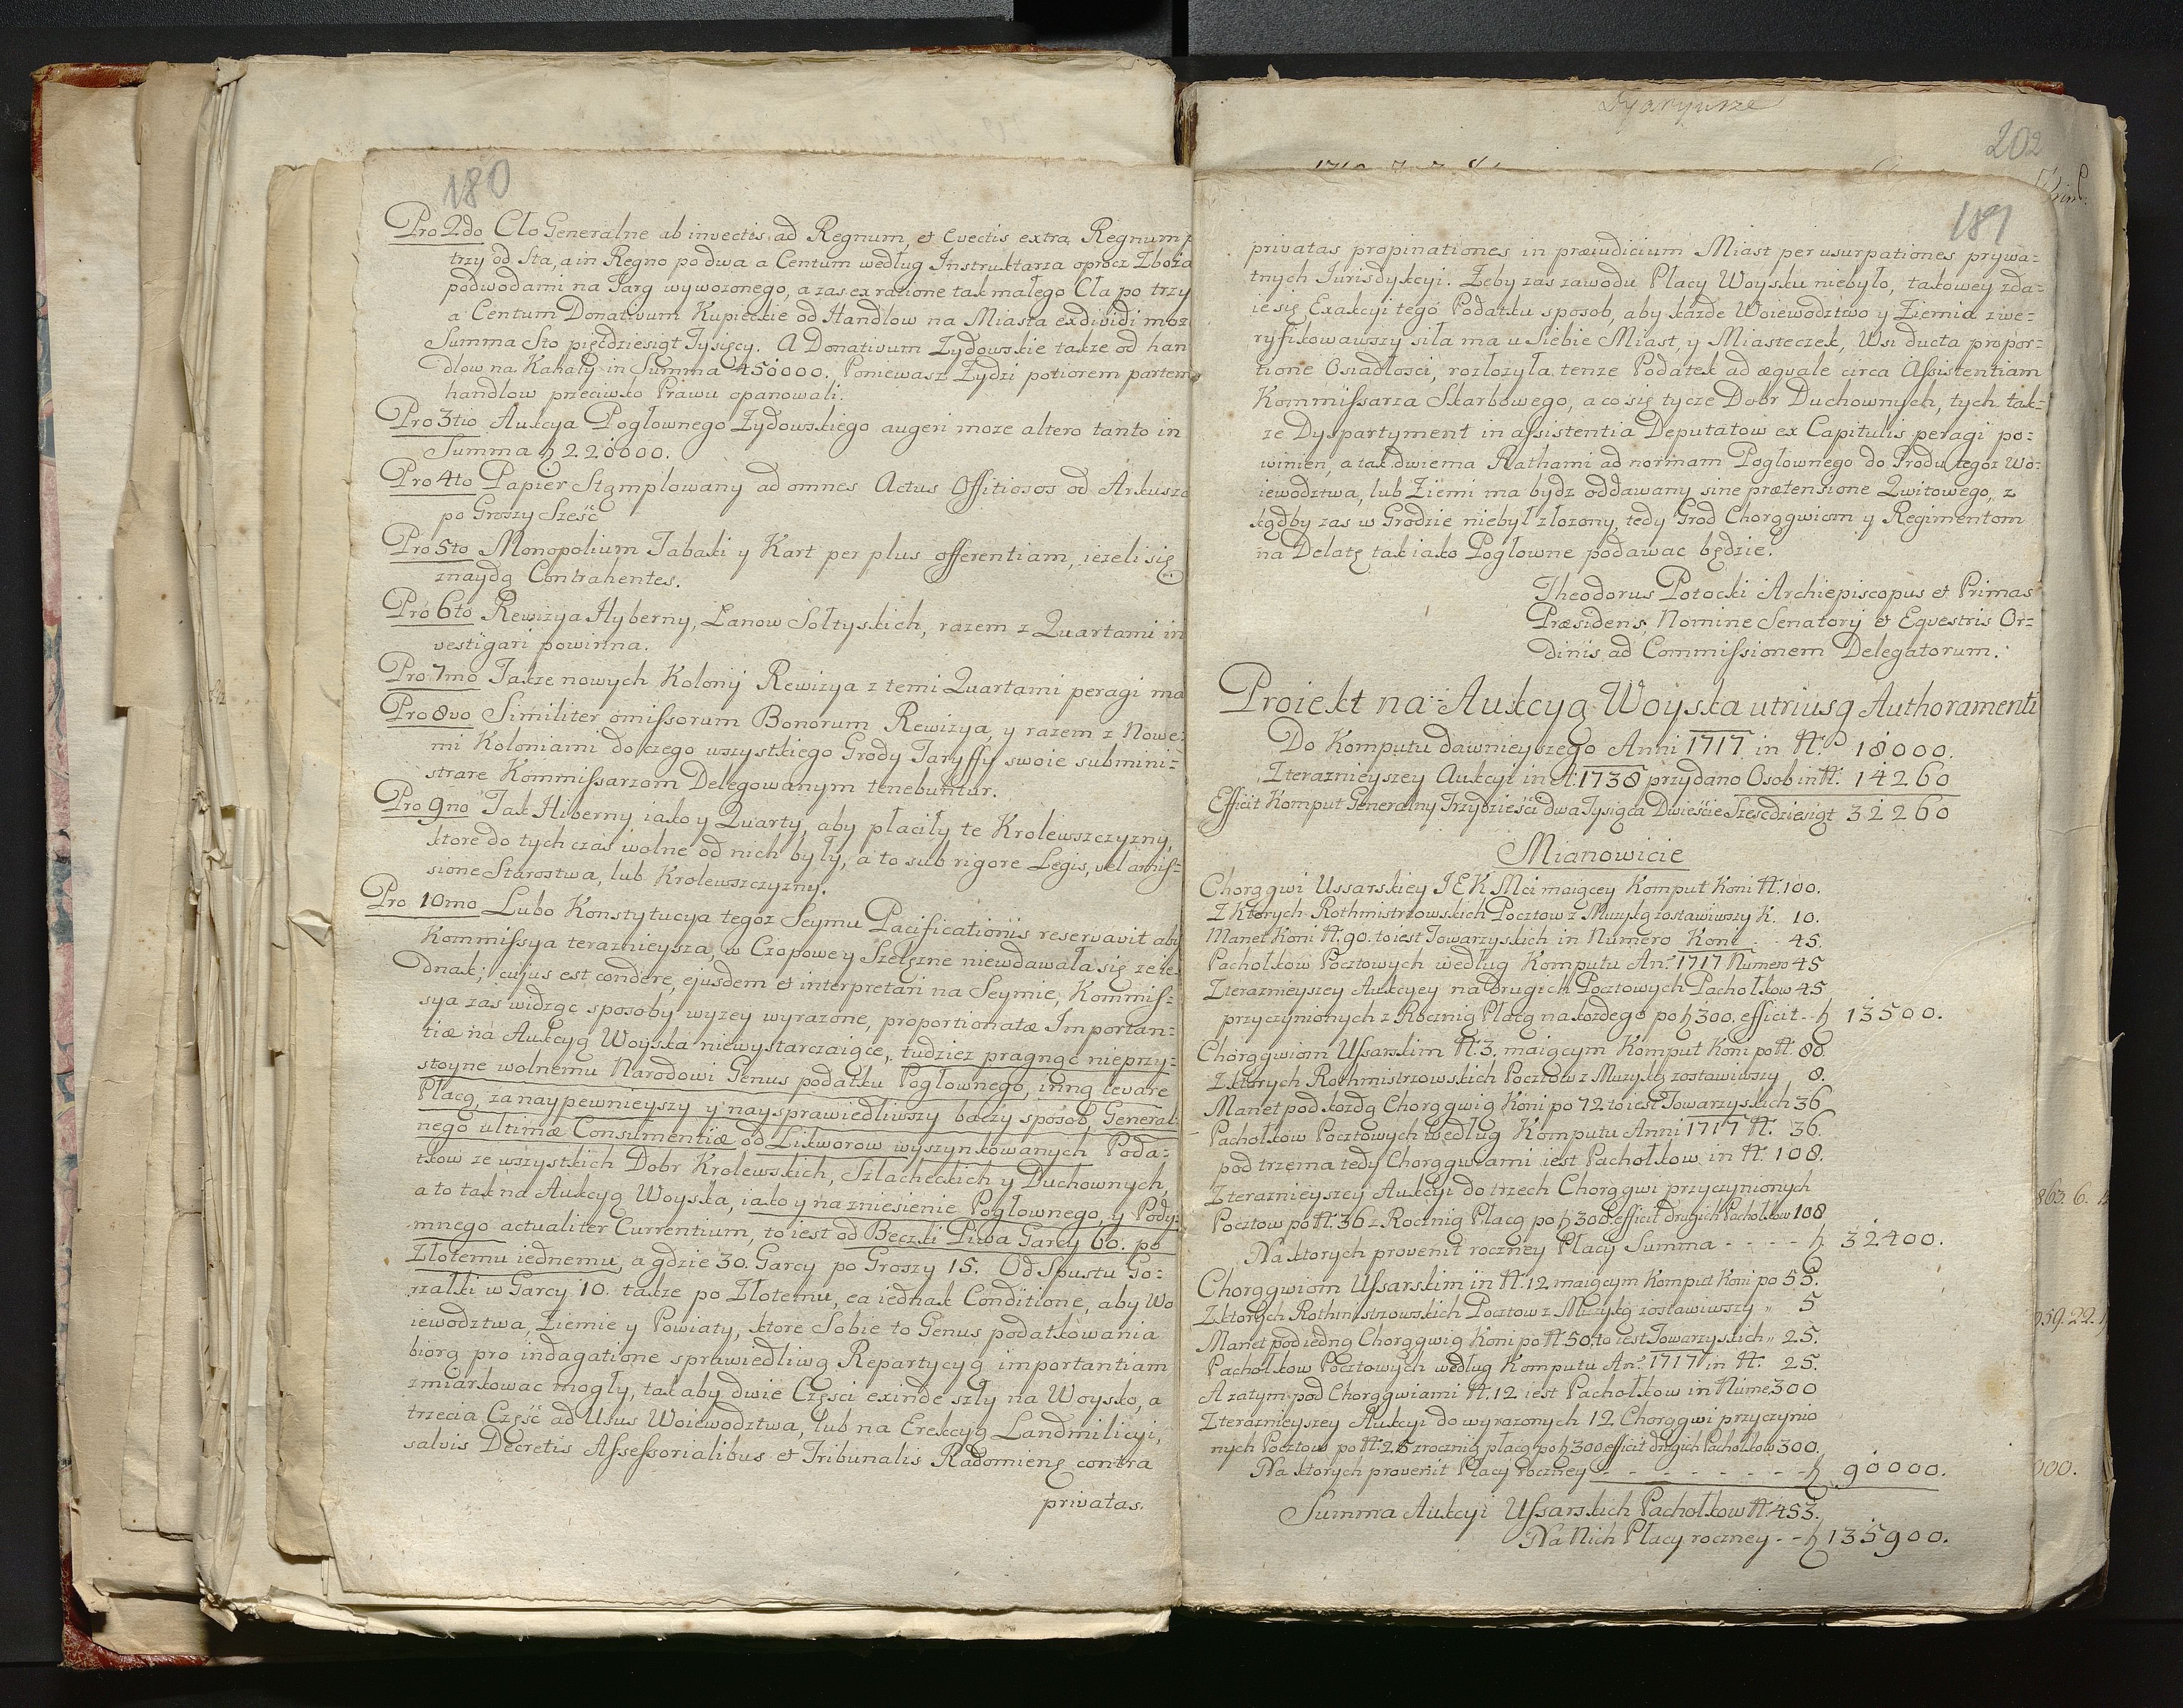 180
Pro 2do Cło Generalne ab invectis ad Regnum, et Evectis extra Regnum
trzy od Sta, a in Regno po dwa a Centum według Instruktarza oprocz Zboża
podwodami na Targ wywozonego, a zas ex ratione tak małego Cła po trzy
a Centum Donativum Kupieckie od Handlow na Miasta exdividi moz
Summa Sto pięcdziesiąt Tysięcy. A Donativum Zydowskie takze od han
dlow na Kahały in Summa 450000. Poniewasz Zydzi potiorem partem
handlow przeciwko Prawu opanowali.
Pro 3tio Aukcya Pogłownego Zydowskiego augeri moze altero tanto in
Summa ƶ 220000.
Pro 4to Papier Stąmplowany ad omnes Actus Offitiosos od Arkusza
po Groszy Sześć
Pro 5to Monopolium Tabaki y Kart per plus offerentiam, iezeli się
znaydą Contrahentes.
Pro 6to Rewizya Hyberny, Łanow Sołtyskich, razem z Quartami in
vestigari powinna.
Pro 7mo Takze nowych Kolonij Rewizya z temi Quartami peragi ma
Pro 8vo Similiter omissorum Bonorum Rewizya, y razem z Nowe:
mi Koloniami do czego wszystkiego Grody Taryffy swoie submini:
strare Kommissarzom Delegowanym tenebuntur.
Pro 9no Tak Hiberny iako y Quarty, aby płaciły te Krolewszczyzny,
ktore do tych czas wolne od nich były, a to sub rigore Legis, vel amis-
sione Starostwa, lub Krolewszczyzny.
Pro 10mo Lubo Konstytucya tegoz Seymu Pacificationis reservavit aby
Kommissya teraznieysza, w Czopowe y Szelęzne niewdawała się ze ie
dnak; cujus est condere, ejusdem et interpretari na Seymie, Kommis-
sya zaś widząc sposoby wyzey wyrazone, proportionatæ Importan-
tiæ na Aukcyą Woyska niewystarczaiące, tudziez pragnąc nieprzy-
stoyne wolnemu Narodowi Genus podatku Pogłownego, inną levare
Płacą, za naypewnieyszy y naysprawiedliwszy baczy sposob, General
nego ultimæ Consumentiæ od Likworow wyszynkowanych Poda-
tkow ze wszystkich Dobr Krolewskich, Szlacheckich y Duchownych,
a to tak na Aukcyą Woyska, iako y na zniesienie Pogłownego, y Pody:
mnego actualiter Currentium, to iest od Beczki Piwa Garcy 60. po
Złotemu iednemu, a gdzie 30. Garcy po Groszy 15. Od Spustu Go:
rzałki w Garcy 10. takze po Złotemu, ea iednak Conditione, aby Wo
iewodztwa, Ziemie y Powiaty, ktore Sobie to Genus podatkowania
biorą pro indagatione sprawiedliwą Repartycyą importantiam
zmiarkowac mogły, tak aby dwie Części exinde szły na Woysko, a
trzecia Część ad Usus Woiewodztwa, lub na Erekcyą Landmilicyi,
salvis Decretis Assessorialibus et Tribunalis Radomienę contra
privatas.
Dyaryusze
202
181
privatas propinationes in præiudicium Miast per usurpationes prywa:
tnych Iurisdykcyi. Zeby zas zawodu Płacy Woysku niebyło, takowey zda:
ie się Exakcyi tego Podatku sposob, aby kazde Woiewodztwo y Ziemia zwe:
ryfikowawszy siła ma u siebie Miast, y Miasteczek, Wsi ducta propor:
tione Osiadłosci, rozłozyła tenze Podatek ad æquale circa Assistentiam
Kommissarza Skarbowego, a co się tycze Dobr Duchownych, tych tak:
ze Dyspartyment in assistentia Deputatow ex Capitulis peragi po:
winien, a tak dwiema Rathami ad normam Pogłownego do Grodu tegoz Wo:
iewodztwa, lub Ziemi ma bydz oddawany sine prætensione Qwitowego, z
kądby zas w Grodzie niebył złozony, tedy Grod Chorągwiom y Regimentom
na Delatę tak iako Pogłowne podawac będzie.
Theodorus Potocki Archiepiscopus et Primas
Præsidens, Nomine Senatorij et Equestris Or:
dinis ad Commissionem Delegatorum.
Proiekt na Aukcyą Woyska utriusq Authoramenti
Do Komputu dawnieyszego Anni 1717 in N.º 18000.
Z teraznieyszey Aukcyi in A: 1738 przydano Osob in N: 14260
Efficit Komput Generalny Trzydzieści dwa Tysiąca Dwieście Szescdziesiąt 32260
Mianowicie
Chorągwi Ussarskiey J E K Mci maiącey Komput Koni N. 100.
Z Ktorych Rothmistrzowskich Pocztow z Muzyką zostawiwszy K. 10.
Manet Koni N. 90. to iest Towarzyskich in Numero Koni . . 45.
Pachołkow Pocztowych według Komputu An: 1717 Numero 45
Z teraznieyszey Aukcyey na drugich Pocztowych Pachołkow 45
przyczynionych z Roczną Płacą na kozdego po ƶ 300. efficit - - ƶ 13500.
Chorągwiom Ussarskim N. 3. maiącym Komput Koni po N. 80.
Z ktorych Rothmistrzowskich Pocztow z Muzyką zostawiwszy 8.
Manet pod kozdą Chorągwią Koni po 72 to iest Towarzyskich 36
Pachołkow Pocztowych według Komputu Anni 1717 N. 36.
pod trzema tedy Chorągwiami iest Pachołkow in N. 108.
Z teraznieyszey Aukcyi do trzech Chorągwi przyczynionych
Pocztow po N. 36 z Roczną Płacą po ƶ 300 efficit drugich Pachołkow 108
Na ktorych provenit roczney Płacy Summa - - - - ƶ 32400.
Chorągwiom Ussarskim in N. 12 maiącym Komput Koni po 55.
Z ktorych Rothmistrzowskich Pocztow z Muzyką zostawiwszy " 5
Manet pod iedną Chorągwią Koni po N. 50. to iest Towarzyskich " 25.
Pachołkow Pocztowych według Komputu An: 1717 in N. 25.
A zatym pod Chorągwiami N. 12 iest Pachołkow in Nume 300
Z teraznieyszey Aukcyi do wyrazonych 12 Chorągwi przyczynio
nych Pocztow po N. 25 z roczną płacą po ƶ 300 efficit drugich Pachołkow 300.
Na ktorych provenit Płacy roczney - - - - - - - - ƶ 90000.
Summa Aukcyi Ussarskich Pachołkow N. 453.
Na Nich Płacy roczney - - ƶ 135900.